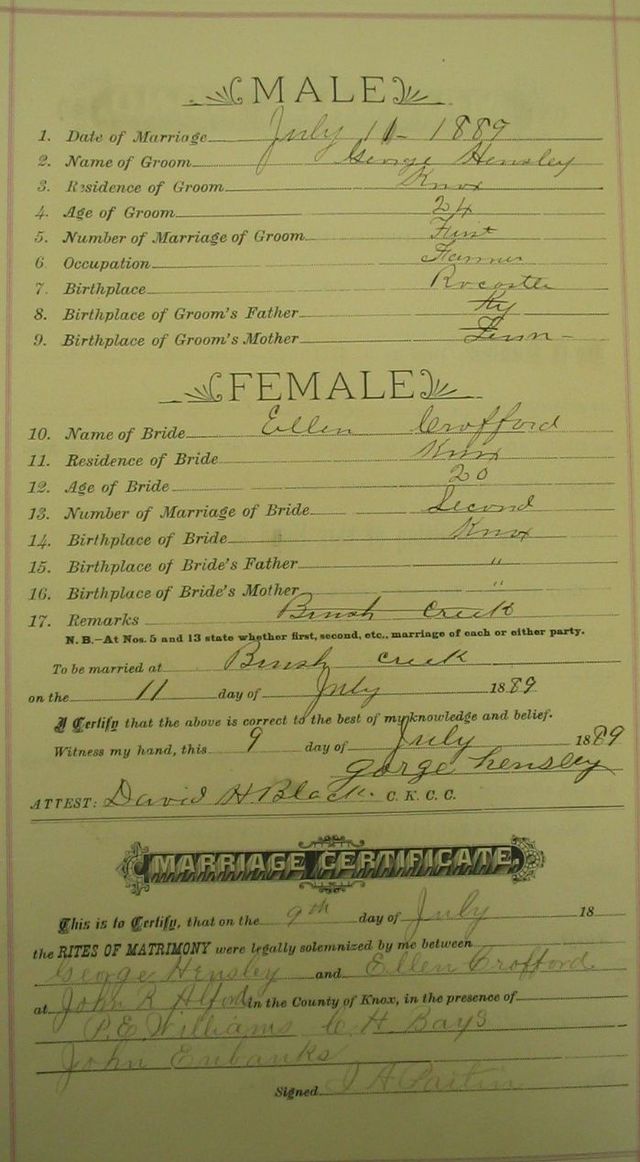 MALE
1. Date of Marriage July 11 - 1889
2. Name of Groom George Hensley
3. Residence of Groom Knox
4. Age of Groom 24
5. Number of Marriage of Groom First
6 Occupation Farmer
7. Birthplace
8. Birthplace of Groom's Father Ky
9. Birthplace of Groom's Mother Tenn -
FEMALE
10. Name of Bride Ellen Crofford
11. Residence of Bride Knox
12. Age of Bride 20
13. Number of Marriage of Bride Second
14. Birthplace of Bride Knox
15. Birthplace of Bride's Father "
16. Birthplace of Bride's Mother "
17. Remarks Brush Creek
N. B.—At Nos. 5 and 13 state whether first, second, etc., marriage of each or either party.
To be married at Brush Creek
on the 11 day of July 1889
I Certify that the above is correct to the best of my knowledge and belief.
Witness my hand, this 9 day of July 1889
gorge hensley
ATTEST: David H Black. C. K. C. C.
MARRIAGE CERTIFICATE.
This is to Certify, that on the 9th day of July 18
the RITES OF MATRIMONY were legally solemnized by me between
George Hensley and Ellen Crofford
at John R Alford in the County of Knox, in the presence of
P. E. Williams C. H Bays
John Eubanks
Signed J A